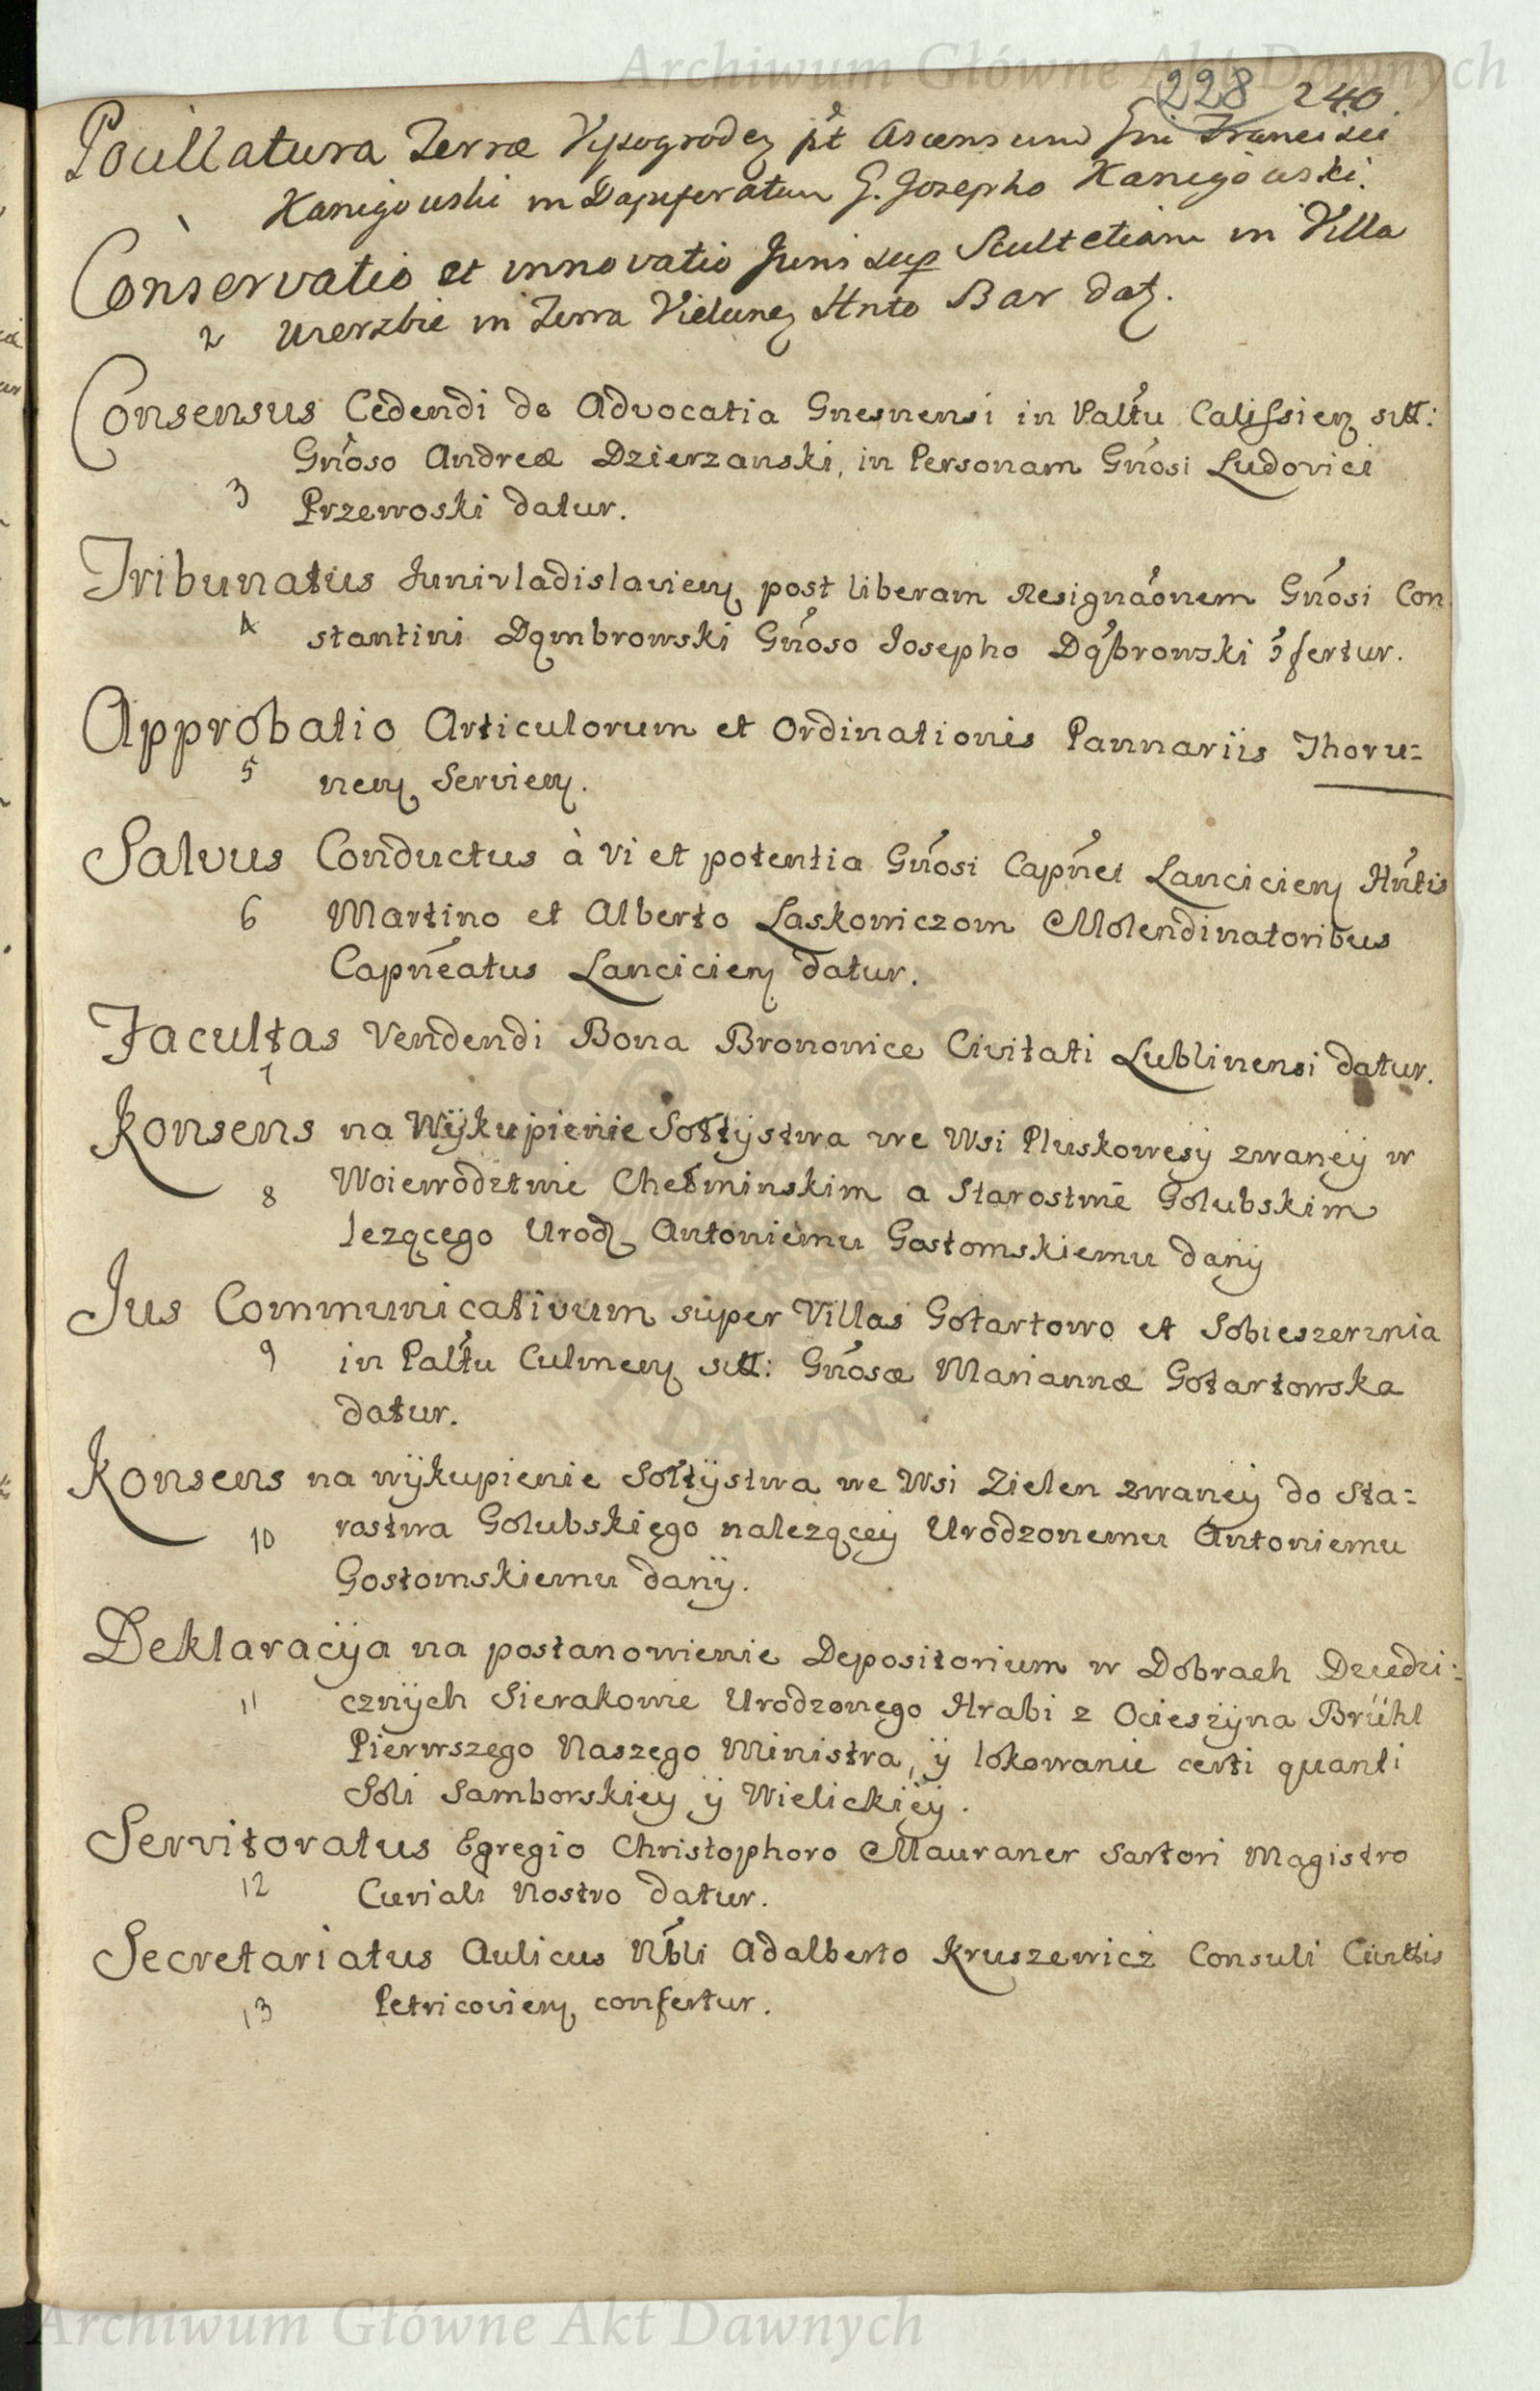 Archiwum Główne Akt Dawnych
228 240
Pocillatura Terræ Vyssogrodeȝ pt Ascensum Gni Francisci
Kanigowski in Dapiferatum G. Josepho Kanigowski.
1
Conservatio et innovatio Juris sup Scultetiam in Villa
2 Wierzbie in Terra Vieluneȝ Hnto Bar datȝ.
Consensus Cedendi de Advocatia Gnesnensi in Paltu Calissieȝ sitt:
Gnoso Andreæ Dzierzanski, in Personam Gnosi Ludovici
3 Przewoski datur.
Tribunatus Junivladislavieȝ post liberam Resignaonem Gnosi Con
4 stantini Dąmbrowski Gnoso Josepho Dąbrowski ɔfertur.
Approbatio Articulorum et Ordinationis Pannariis Thoru=
5 neȝ Servieȝ.
Salvus Conductus à vi et potentia Gnosi Capnei Lancicieȝ Hntis
6 Martino et Alberto Laskowiczom Molendinatoribus
Capneatus Lancicieȝ datur.
Facultas Vendendi Bona Bronowice Civitati Lublinensi datur.
7
Konsens na Wÿkupienie Sołtÿstwa we Wsi Pluskowęsÿ zwaneÿ w
8 Woiewodztwie Chełminskim a Starostwie Golubskim
lezącego Urodȝ Antoniemu Gostomskiemu danÿ
Jus Communicativum super Villas Gotartowo et Sobieszerznia
9 in Paltu Culmeȝ sitt: Gnosæ Mariannæ Gotartowska
datur.
Konsens na wÿkupienie Sołtÿstwa we Wsi Zielen zwaneÿ do Sta=
10 rostwa Golubskiego nalezącеÿ Urodzonemu Antoniemu
Gostomskiemu danÿ.
Deklaracÿa na postanowienie Depositorium w Dobrach Dziedzi=
11 cznÿch Sierakowie Urodzonego Hrabi z Ocieszÿna Brühl
Pierwszego Naszego Ministra, ÿ lokowanie certi quanti
Soli Samborskieÿ ÿ Wielickieÿ.
Servitoratus Egregio Christophoro Mauraner Sartori Magistro
12 Curiali Nostro datur.
Secretariatus Aulicus Nbli Adalberto Kruszewicz Consuli Civittis
13 Petricovieȝ confertur.
Archiwum Główne Akt Dawnych